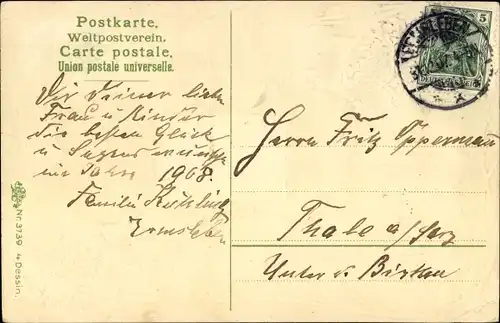 Postkarte.
Weltpostverein.
Carte postale.
Union postale universelle.
Dir Deiner lieben
Frau u Kinder
die besten Glück
u Segenswünsche
im Jahre 1908.
Familie
Ermsleben
Nr. 3739 4 Dessin.
5
ERMSLEBEN
Herrn Fritz Oppermann
Thale a/Harz
Unter d. Birken